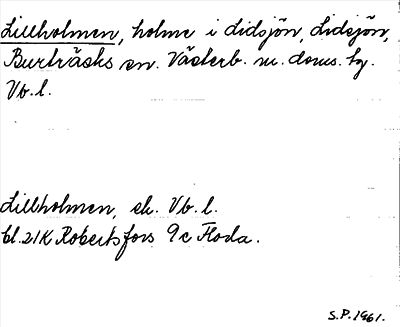 Lillholmen, holme i Lidsjön, Lidsjön,
Burträsks sn. Västerb. m. doms. hg.
Vb. l.
Lillholmen, ek. Vb. l.
bl. 21K Robertsfors 9c Floda.
S.P. 1961.